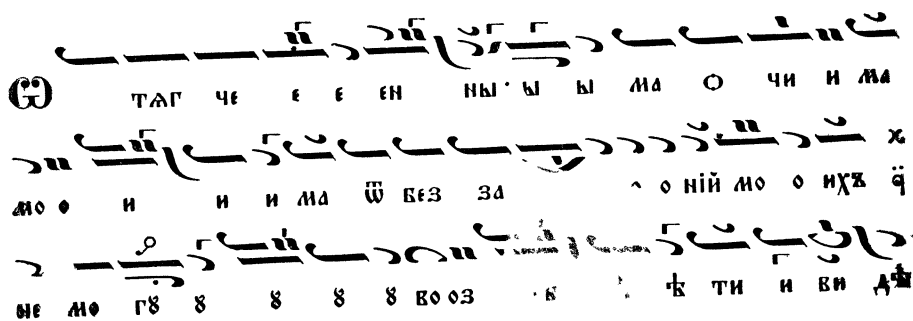 Ѿ тѧг че е е ен ны ы ы ма о чи и ма
мо о и и и ма ѿ без за о ній мо о ихъ
не мо гꙋ ꙋ ꙋ ꙋ ꙋ во оз ѣ ти и ви дѣ